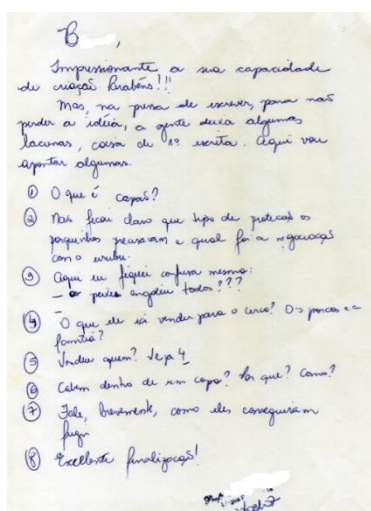 B
Impressionante a sua capacidade
de criação! Parabéns!!!
Mas, na pressa de escrever, para não
perder a idéia, a gente deixa algumas
lacunas, coisa de 1ª escrita. Aqui vou
apontar algumas.
① O que é capaz?
② Não ficou claro que tipo de proteção os
porquinhos precisavam e qual foi a negociação
com o urubu.
③ Aqui eu fiquei confusa mesmo:
— o peixe engoliu todos???
④ O que ele ia vender para o circo? Os porcos e a
família?
⑤ Vendeu quem? Veja 4
⑥ Cabem dentro de um copo? Por que? Como?
⑦ Fale, brevemente, como eles conseguiram
fugir
⑧ Excelente finalização!